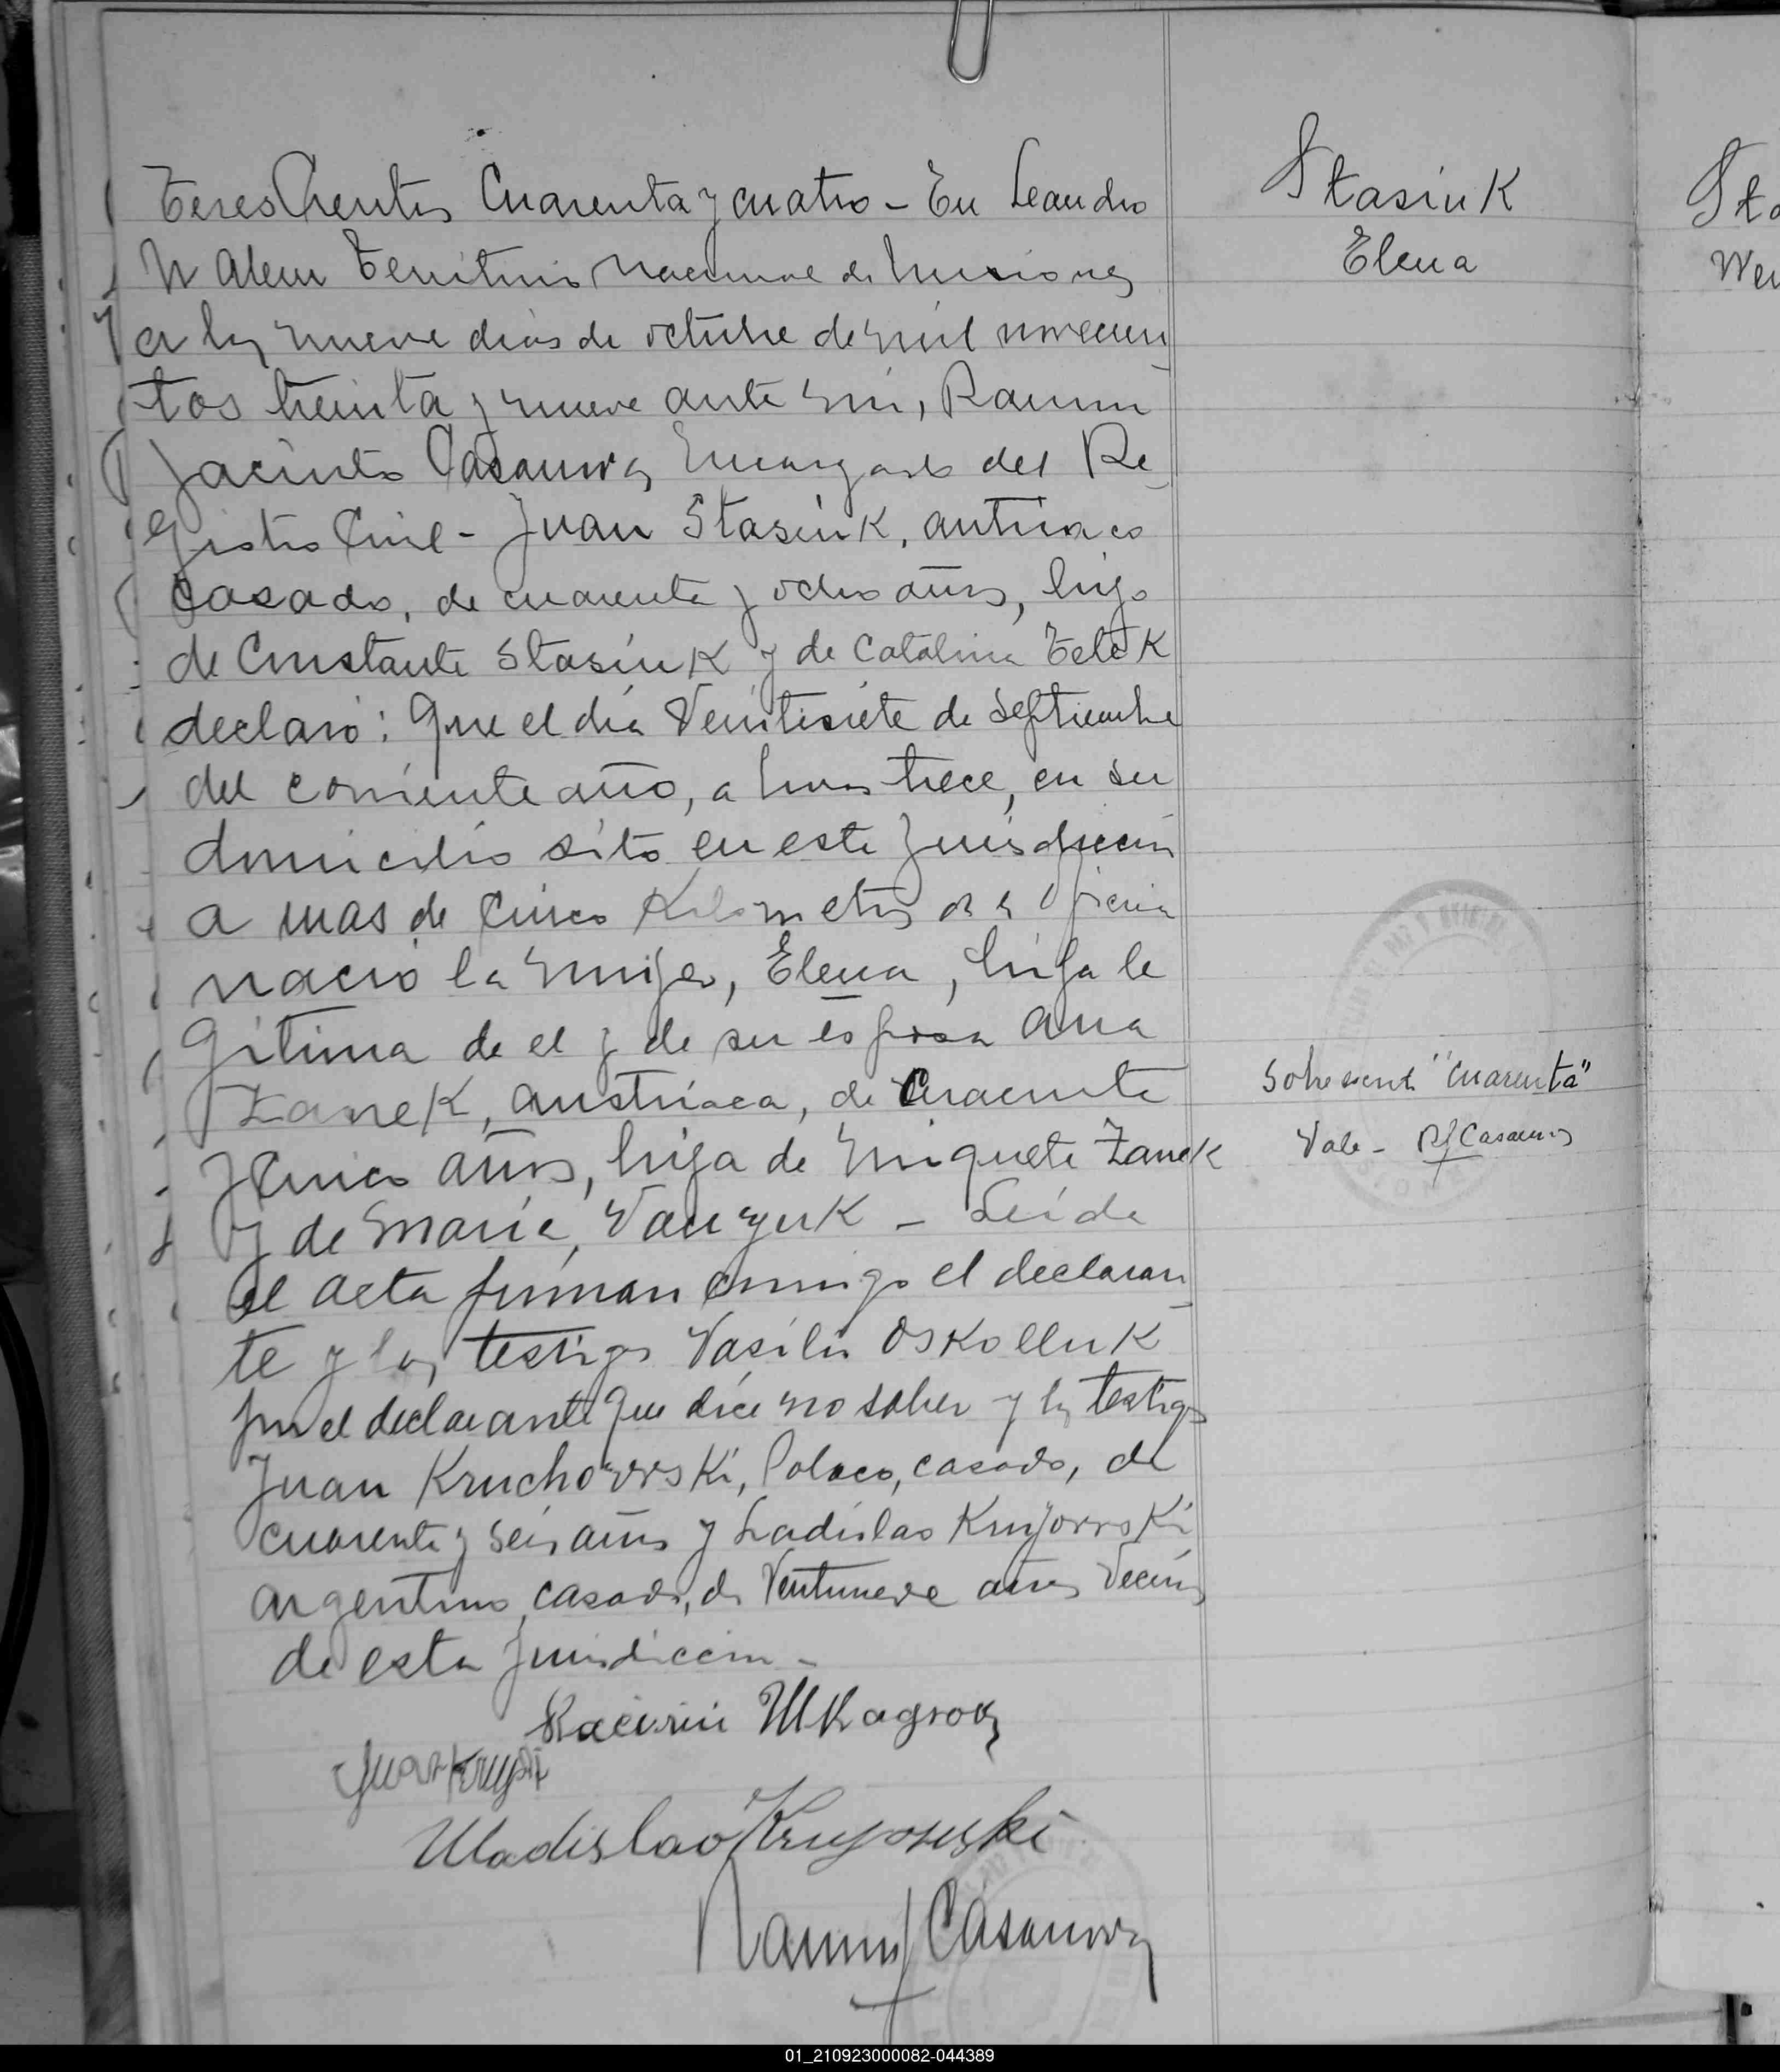 Stasiuk
Elena
Trescientos Cuarenta y cuatro - En Leandro
N Alem Territorio Nacional de Misiones
a los nueve dias de octubre de mil novecien
tos treinta y nueve ante mi, Ramon
Jacinto Casanova Encargado del Re
gistro Civil - Juan Stasiuk, austriaco
casado, de cuarenta y ocho años, hijo
de Constante Stasiuk y de Catalina
declaró: Que el día Veintisiete de Septiembre
del corriente año, a horas trece, en su
domicilio sito en este Jurisdiccion
a mas de cinco Kilometros de la Oficina
nació la mujer, Elena, hija le
gitima de el y de su esposa Ana
Zanek, austriaca, de Cuarenta
y Cinco años, hija de Miguel Zanek
y de Maria - Leida
el acta firman conmigo el declaran
te y los testigos Vasilio Oskolluk
por el declarante que dice no saber y los testigos
Juan Kruchowski, Polaco, casado, de
cuarenta y seis años y Ladislao Krujowski
argentino, casado, de Veintinueve años Vecinos
de esta Jurisdiccion -
Sobreescrito "Cuarenta"
Vale - RJCasanova
Uladislao Krujowski
Ramon J Casanova
Sta
01_210923000082-044389